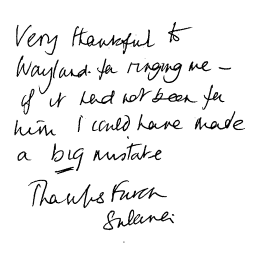 Very thankful to
Wayland for ringing me –
if it had not been for
him I could have made
a big mistake
Thanks